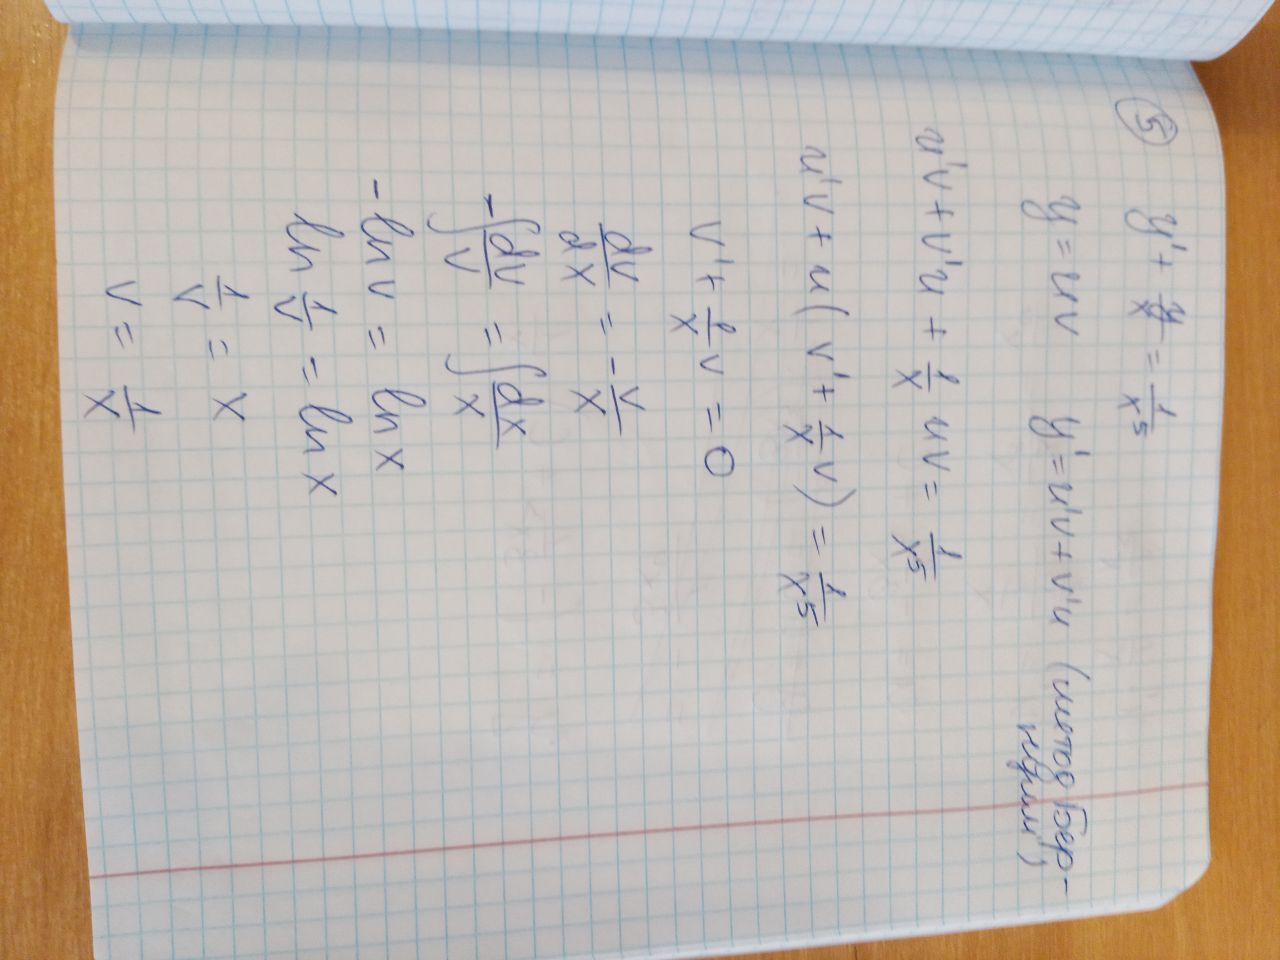 5 y' + y/x = 1/x⁵
y = uv y' = u'v + v'u (метод Бер-
нулли)
u'v + v'u + 1/x uv = 1/x⁵
u'v + u( v' + 1/x v) = 1/x⁵
v' + 1/x v = 0
dv/dx = - v/x
-∫ dv/v = ∫ dx/x
- ln v = ln x
ln 1/v = ln x
1/v = x
v = 1/x